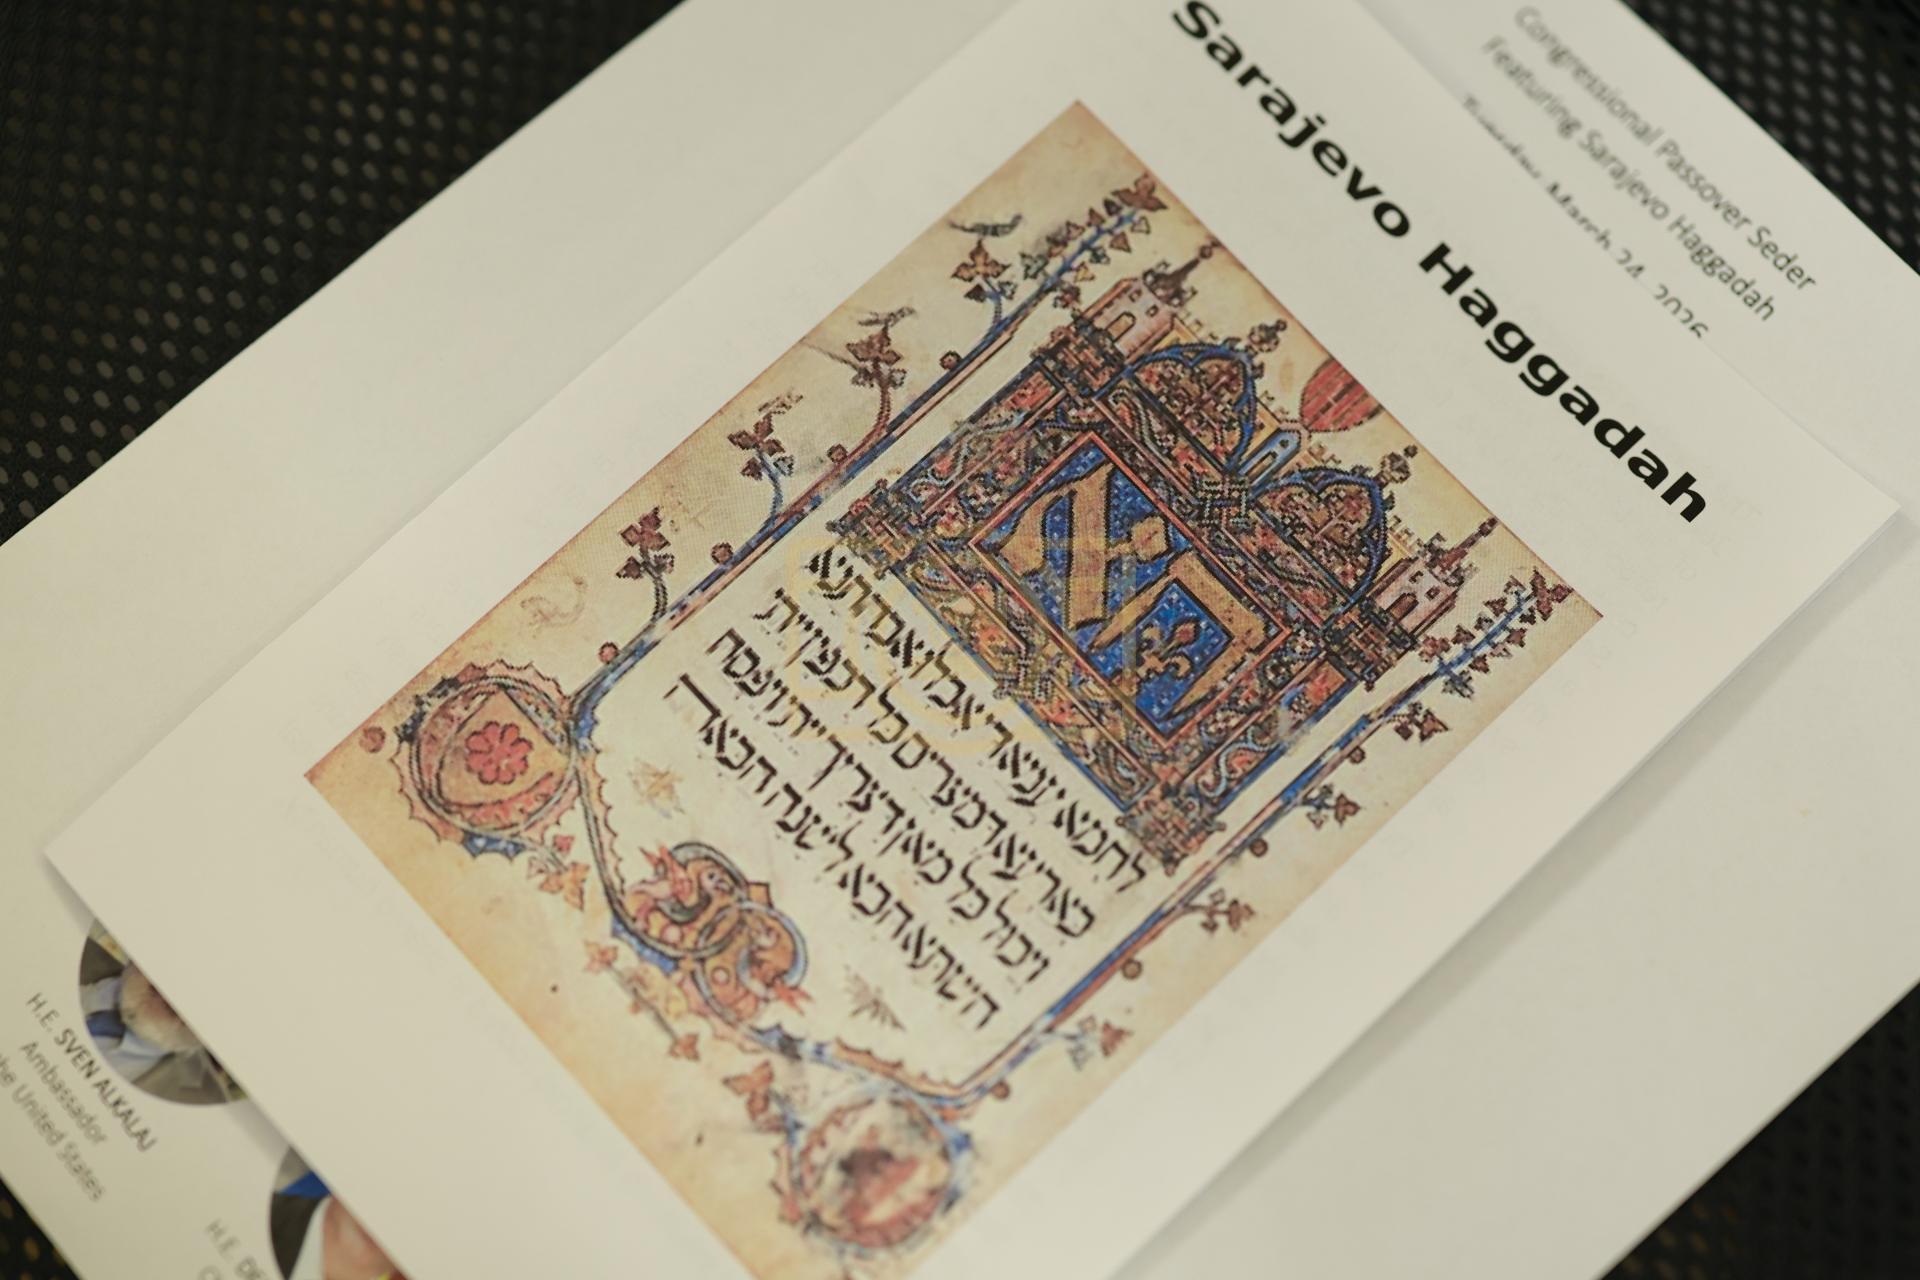 Congressional Passover Seder
Featuring Sarajevo Haggadah
Tuesday March 24, 2026
Sarajevo Haggadah
הא
לחמא עניא די אכלו אבהתנא
בארעא דמצרים כל דכפין ייתי
ויכול כל מאן דצריך ייתי ויפסח
השתא הכא לשנה הבאה
H.E. SVEN ALKALAJ
Ambassador
the United States
H.E.